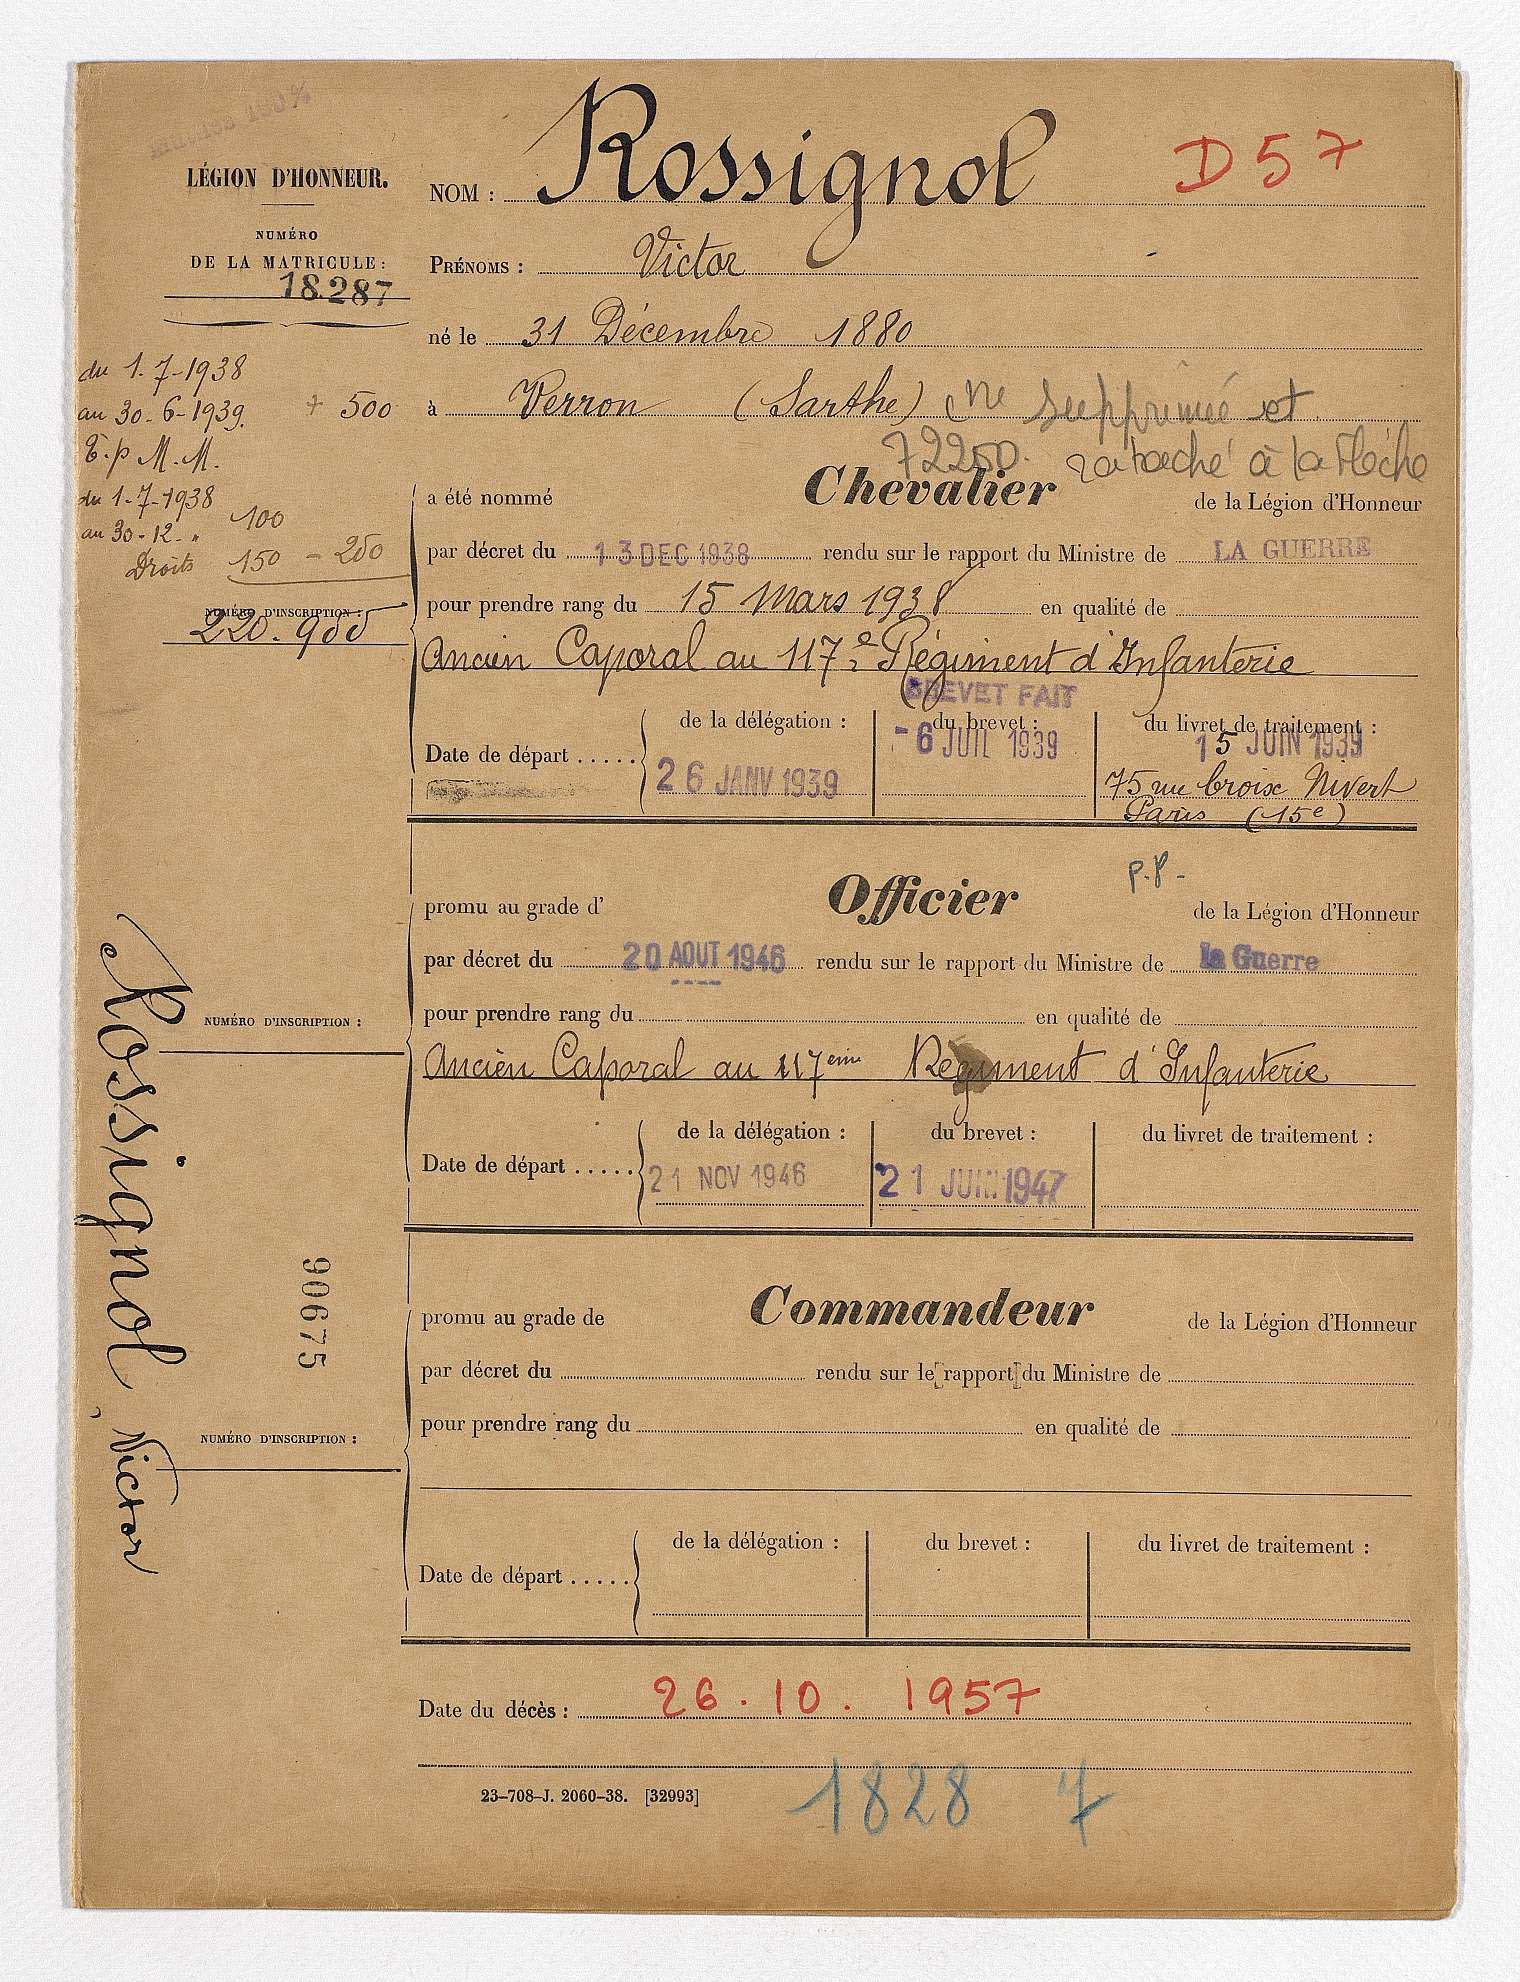 LÉGION D'HONNEUR.
NUMÉRO
DE LA MATRICULE :
18.287
NOM : Rossignol D 57
PRÉNOMS : Victor
né le 31 Décembre 1880
à Verron (Sarthe) cne supprimée et
72200. rattaché à la Flèche
du 1-7-1938
au 30-6-1939. + 500
T.p M.M.
du 1-7-1938
au 30-12-" 100
Droits 150 - 250
NUMÉRO D'INSCRIPTION :
220.955
a été nommé Chevalier de la Légion d'Honneur
par décret du 13 DEC 1938 rendu sur le rapport du Ministre de LA GUERRE
pour prendre rang du 15 Mars 1938 en qualité de
Ancien Caporal au 117e Régiment d'Infanterie
BREVET FAIT
de la délégation : du brevet : du livret de traitement :
Date de départ ..... 26 JANV 1939 - 6 JUIL 1939 15 JUIN 1939
75 rue Croix Nivert
Paris (15e)
P.P.-
promu au grade d' Officier de la Légion d'Honneur
par décret du 20 AOUT 1946 rendu sur le rapport du Ministre de la Guerre
pour prendre rang du en qualité de
NUMÉRO D'INSCRIPTION :
Ancien Caporal au 117eme Régiment d'Infanterie
de la délégation : du brevet : du livret de traitement :
Date de départ ..... 21 NOV 1946 21 JUIN 1947
Rossignol, Victor
90675
promu au grade de Commandeur de la Légion d'Honneur
par décret du rendu sur le [rapport] du Ministre de
pour prendre rang du en qualité de
NUMÉRO D'INSCRIPTION :
de la délégation : du brevet : du livret de traitement :
Date de départ .....
Date du décès : 26.10.1957
23-708-J. 2060-38. [32993]
1828 7